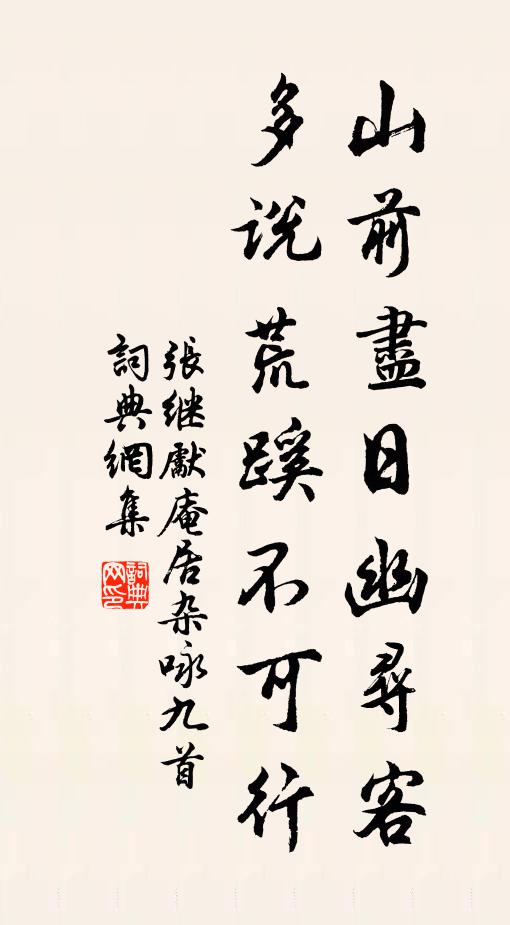 山前盡日幽尋客
多说荒蹊不可行
張继獻庵居杂咏九首
詞典網集
詞典網印